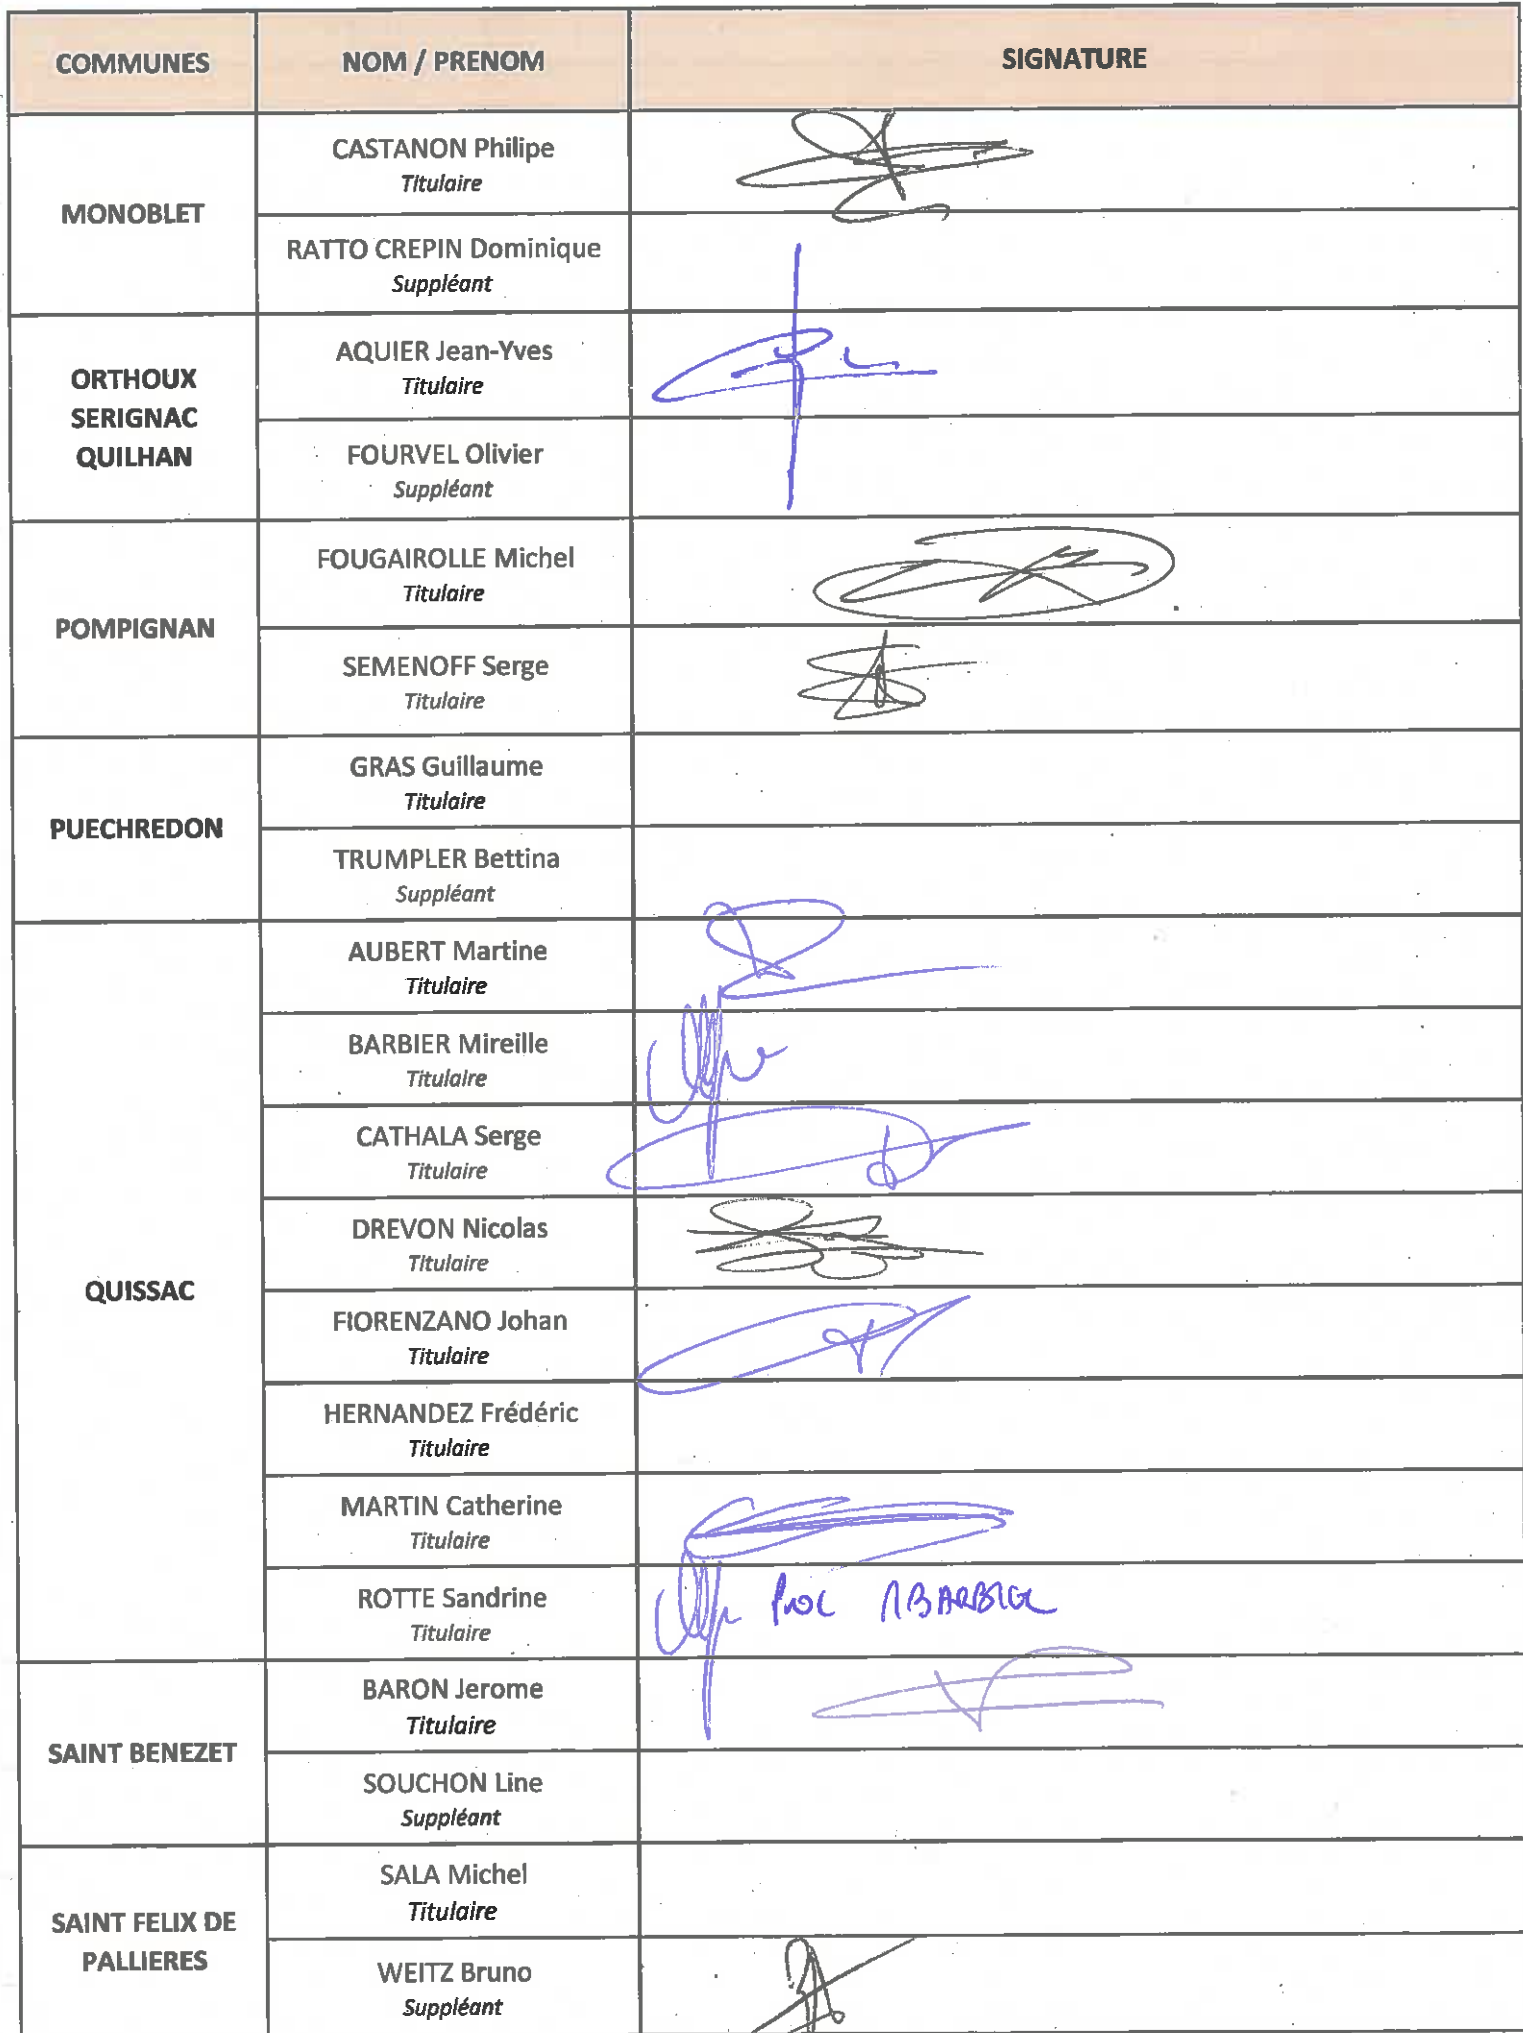 COMMUNES NOM / PRENOM SIGNATURE
MONOBLET
CASTANON Philipe
Titulaire
RATTO CREPIN Dominique
Suppléant
ORTHOUX
SERIGNAC
QUILHAN
AQUIER Jean-Yves
Titulaire
FOURVEL Olivier
Suppléant
POMPIGNAN
FOUGAIROLLE Michel
Titulaire
SEMENOFF Serge
Titulaire
PUECHREDON
GRAS Guillaume
Titulaire
TRUMPLER Bettina
Suppléant
QUISSAC
AUBERT Martine
Titulaire
BARBIER Mireille
Titulaire
CATHALA Serge
Titulaire
DREVON Nicolas
Titulaire
FIORENZANO Johan
Titulaire
HERNANDEZ Frédéric
Titulaire
MARTIN Catherine
Titulaire
ROTTE Sandrine
Titulaire
SAINT BENEZET
BARON Jerome
Titulaire
SOUCHON Line
Suppléant
SAINT FELIX DE
PALLIERES
SALA Michel
Titulaire
WEITZ Bruno
Suppléant